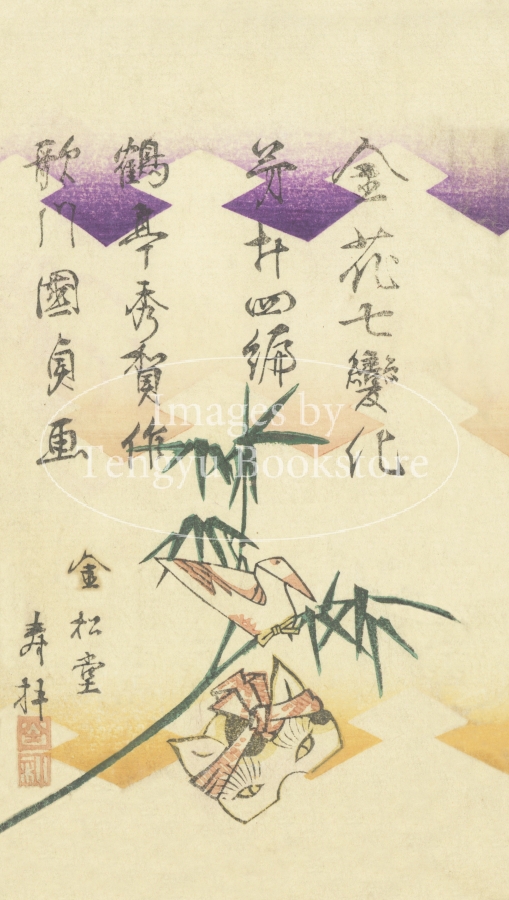 金花七變化
第廿四編
鶴亭秀賀作
歌川國貞画
金松堂
壽梓
Images by
Tengyu Bookstore